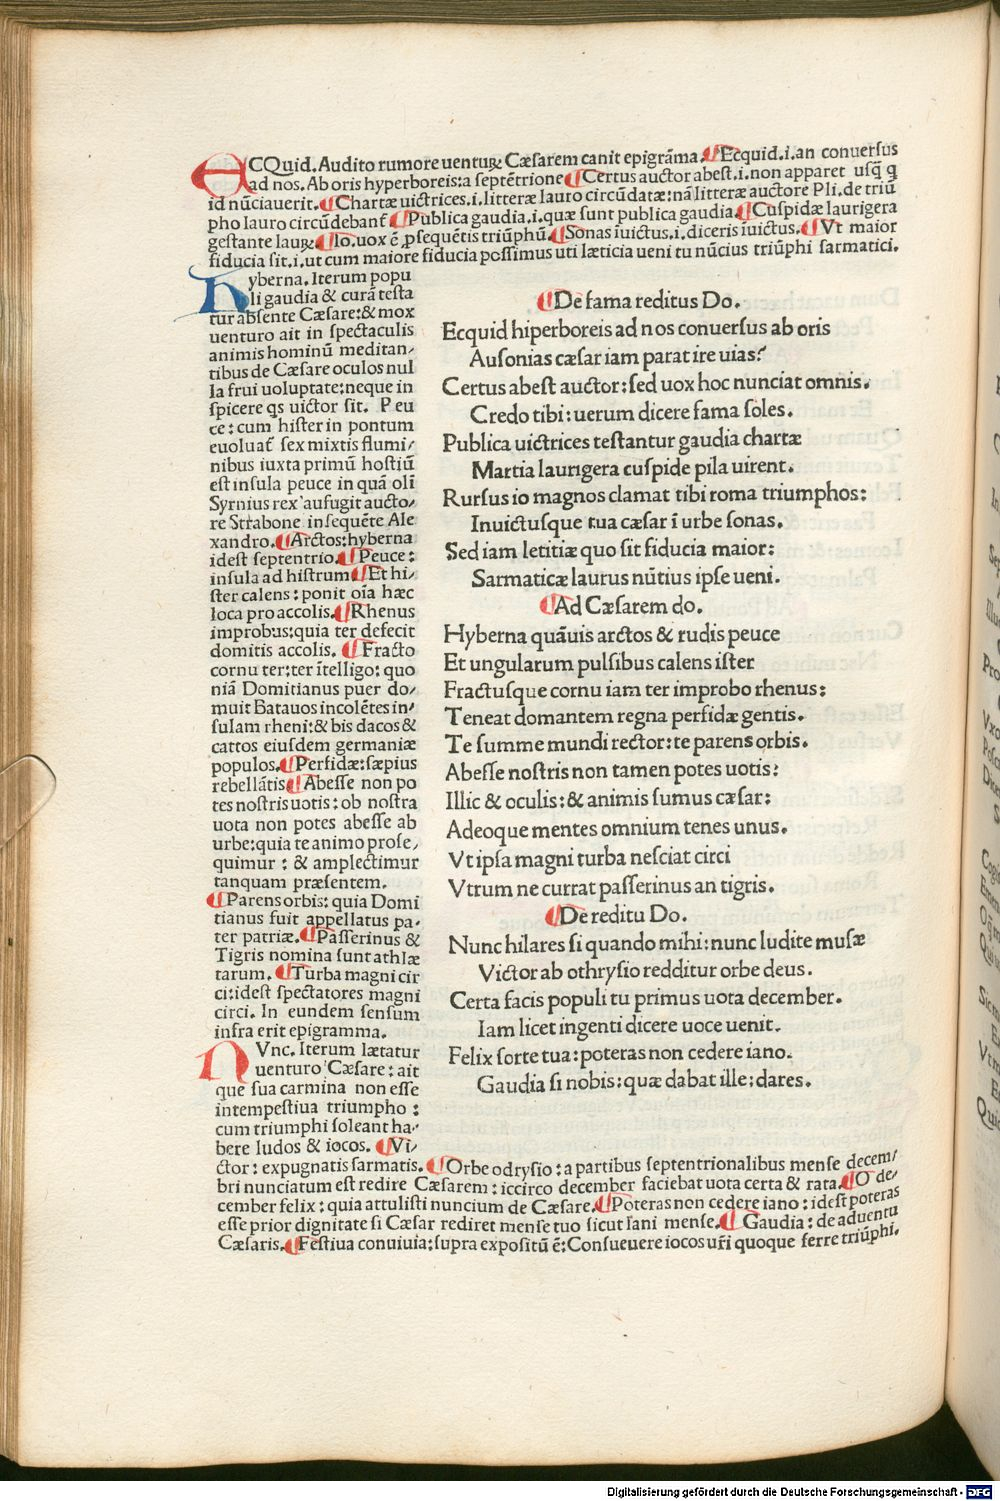 ECQuid. Audito rumore uentuꝝ Cæsarem canit epigrãma. ¶Ecquid.i.an conuersus
ad nos. Ab oris hyperboreis:a septẽtrione ¶Certus auctor abest.i.non apparet usq̃ q̃
id nũciauerit. ¶Chartæ uictrices.i.litteræ lauro circũdatæ:nã litteræ auctore Pli.de triũ
pho lauro circũdebant̃ ¶Publica gaudia.i.quæ sunt publica gaudia ¶Cuspidæ laurigera
gestante lauꝝ. ¶Io.uox ẽ ꝓsequẽtis triũphũ. ¶Sonas iuictus.i.diceris iuictus. ¶Vt maior
fiducia sit.i.ut cum maiore fiducia possimus uti læticia ueni tu nũcius triũphi sarmatici.
Hyberna. Iterum popu
li gaudia & curã testa
tur absente Cæsare:& mox
uenturo ait in spectaculis
animis hominũ meditan/
tibus de Cæsare oculos nul
la frui uoluptate:neque in
spicere qs uictor sit. Peu
ce: cum hister in pontum
euoluat̃ sex mixtis flumi/
nibus iuxta primũ hostiũ
est insula peuce in quã oli
Syrnius rex aufugit aucto/
re Strabone insequẽte Ale
xandro. ¶Arctos:hyberna
idest septentrio. ¶Peuce:
insula ad histrum ¶Et hi/
ster calens: ponit oĩa hæc
loca pro accolis. ¶Rhenus
improbus:quia ter defecit
domitis accolis. ¶Fracto
cornu ter:ter ĩtelligo: quo
niã Domitianus puer do/
muit Batauos incolẽtes in/
sulam rheni:& bis dacos &
cattos eiusdem germaniæ
populos. ¶Perfidæ:sæpius
rebellãtis ¶Abesse non po
tes nostris uotis: ob nostra
uota non potes abesse ab
urbe:quia te animo prose/
quimur : & amplectimur
tanquam præsentem.
¶Parens orbis: quia Domi
tianus fuit appellatus pa-
ter patriæ. ¶Passerinus &
Tigris nomina sunt athlæ
tarum. ¶Turba magni cir
ci:idest spectatores magni
circi. In eundem sensum
infra erit epigramma.
NVnc. Iterum lætatur
uenturo Cæsare: ait
que sua carmina non esse
intempestiua triumpho :
cum triumphi soleant ha/
bere ludos & iocos. ¶Vi/
ctor: expugnatis sarmatis. ¶Orbe odrysio: a partibus septentrionalibus mense decem/
bri nunciatum est redire Cæsarem: iccirco december faciebat uota certa & rata. ¶O de/
cember felix: quia attulisti nuncium de Cæsare. ¶Poteras non cedere iano: idest poteras
esse prior dignitate si Cæsar rediret mense tuo sicut iani mense. ¶Gaudia: de aduentu
Cæsaris. ¶Festiua conuiuia:supra expositũ ẽ:Consueuere iocos ur̃i quoque ferre triũphi.
¶De fama reditus Do.
Ecquid hiperboreis ad nos conuersus ab oris
Ausonias cæsar iam parat ire uias?
Certus abest auctor:sed uox hoc nunciat omnis.
Credo tibi:uerum dicere fama soles.
Publica uictrices testantur gaudia chartæ
Martia laurigera cuspide pila uirent.
Rursus io magnos clamat tibi roma triumphos:
Inuictusque tua cæsar ĩ urbe sonas.
Sed iam letitiæ quo sit fiducia maior:
Sarmaticæ laurus nũtius ipse ueni.
¶Ad Cæsarem do.
Hyberna quãuis arctos & rudis peuce
Et ungularum pulsibus calens ister
Fractusque cornu iam ter improbo rhenus:
Teneat domantem regna perfidæ gentis.
Te summe mundi rector:te parens orbis.
Abesse nostris non tamen potes uotis:
Illic & oculis:& animis sumus cæsar:
Adeoque mentes omnium tenes unus.
Vt ipsa magni turba nesciat circi
Vtrum ne currat passerinus an tigris.
¶De reditu Do.
Nunc hilares si quando mihi:nunc ludite musæ
Victor ab othrysio redditur orbe deus.
Certa facis populi tu primus uota december.
Iam licet ingenti dicere uoce uenit.
Felix sorte tua:poteras non cedere iano.
Gaudia si nobis:quæ dabat ille;dares.
Digitalisierung gefördert durch die Deutsche Forschungsgemeinschaft - DFG